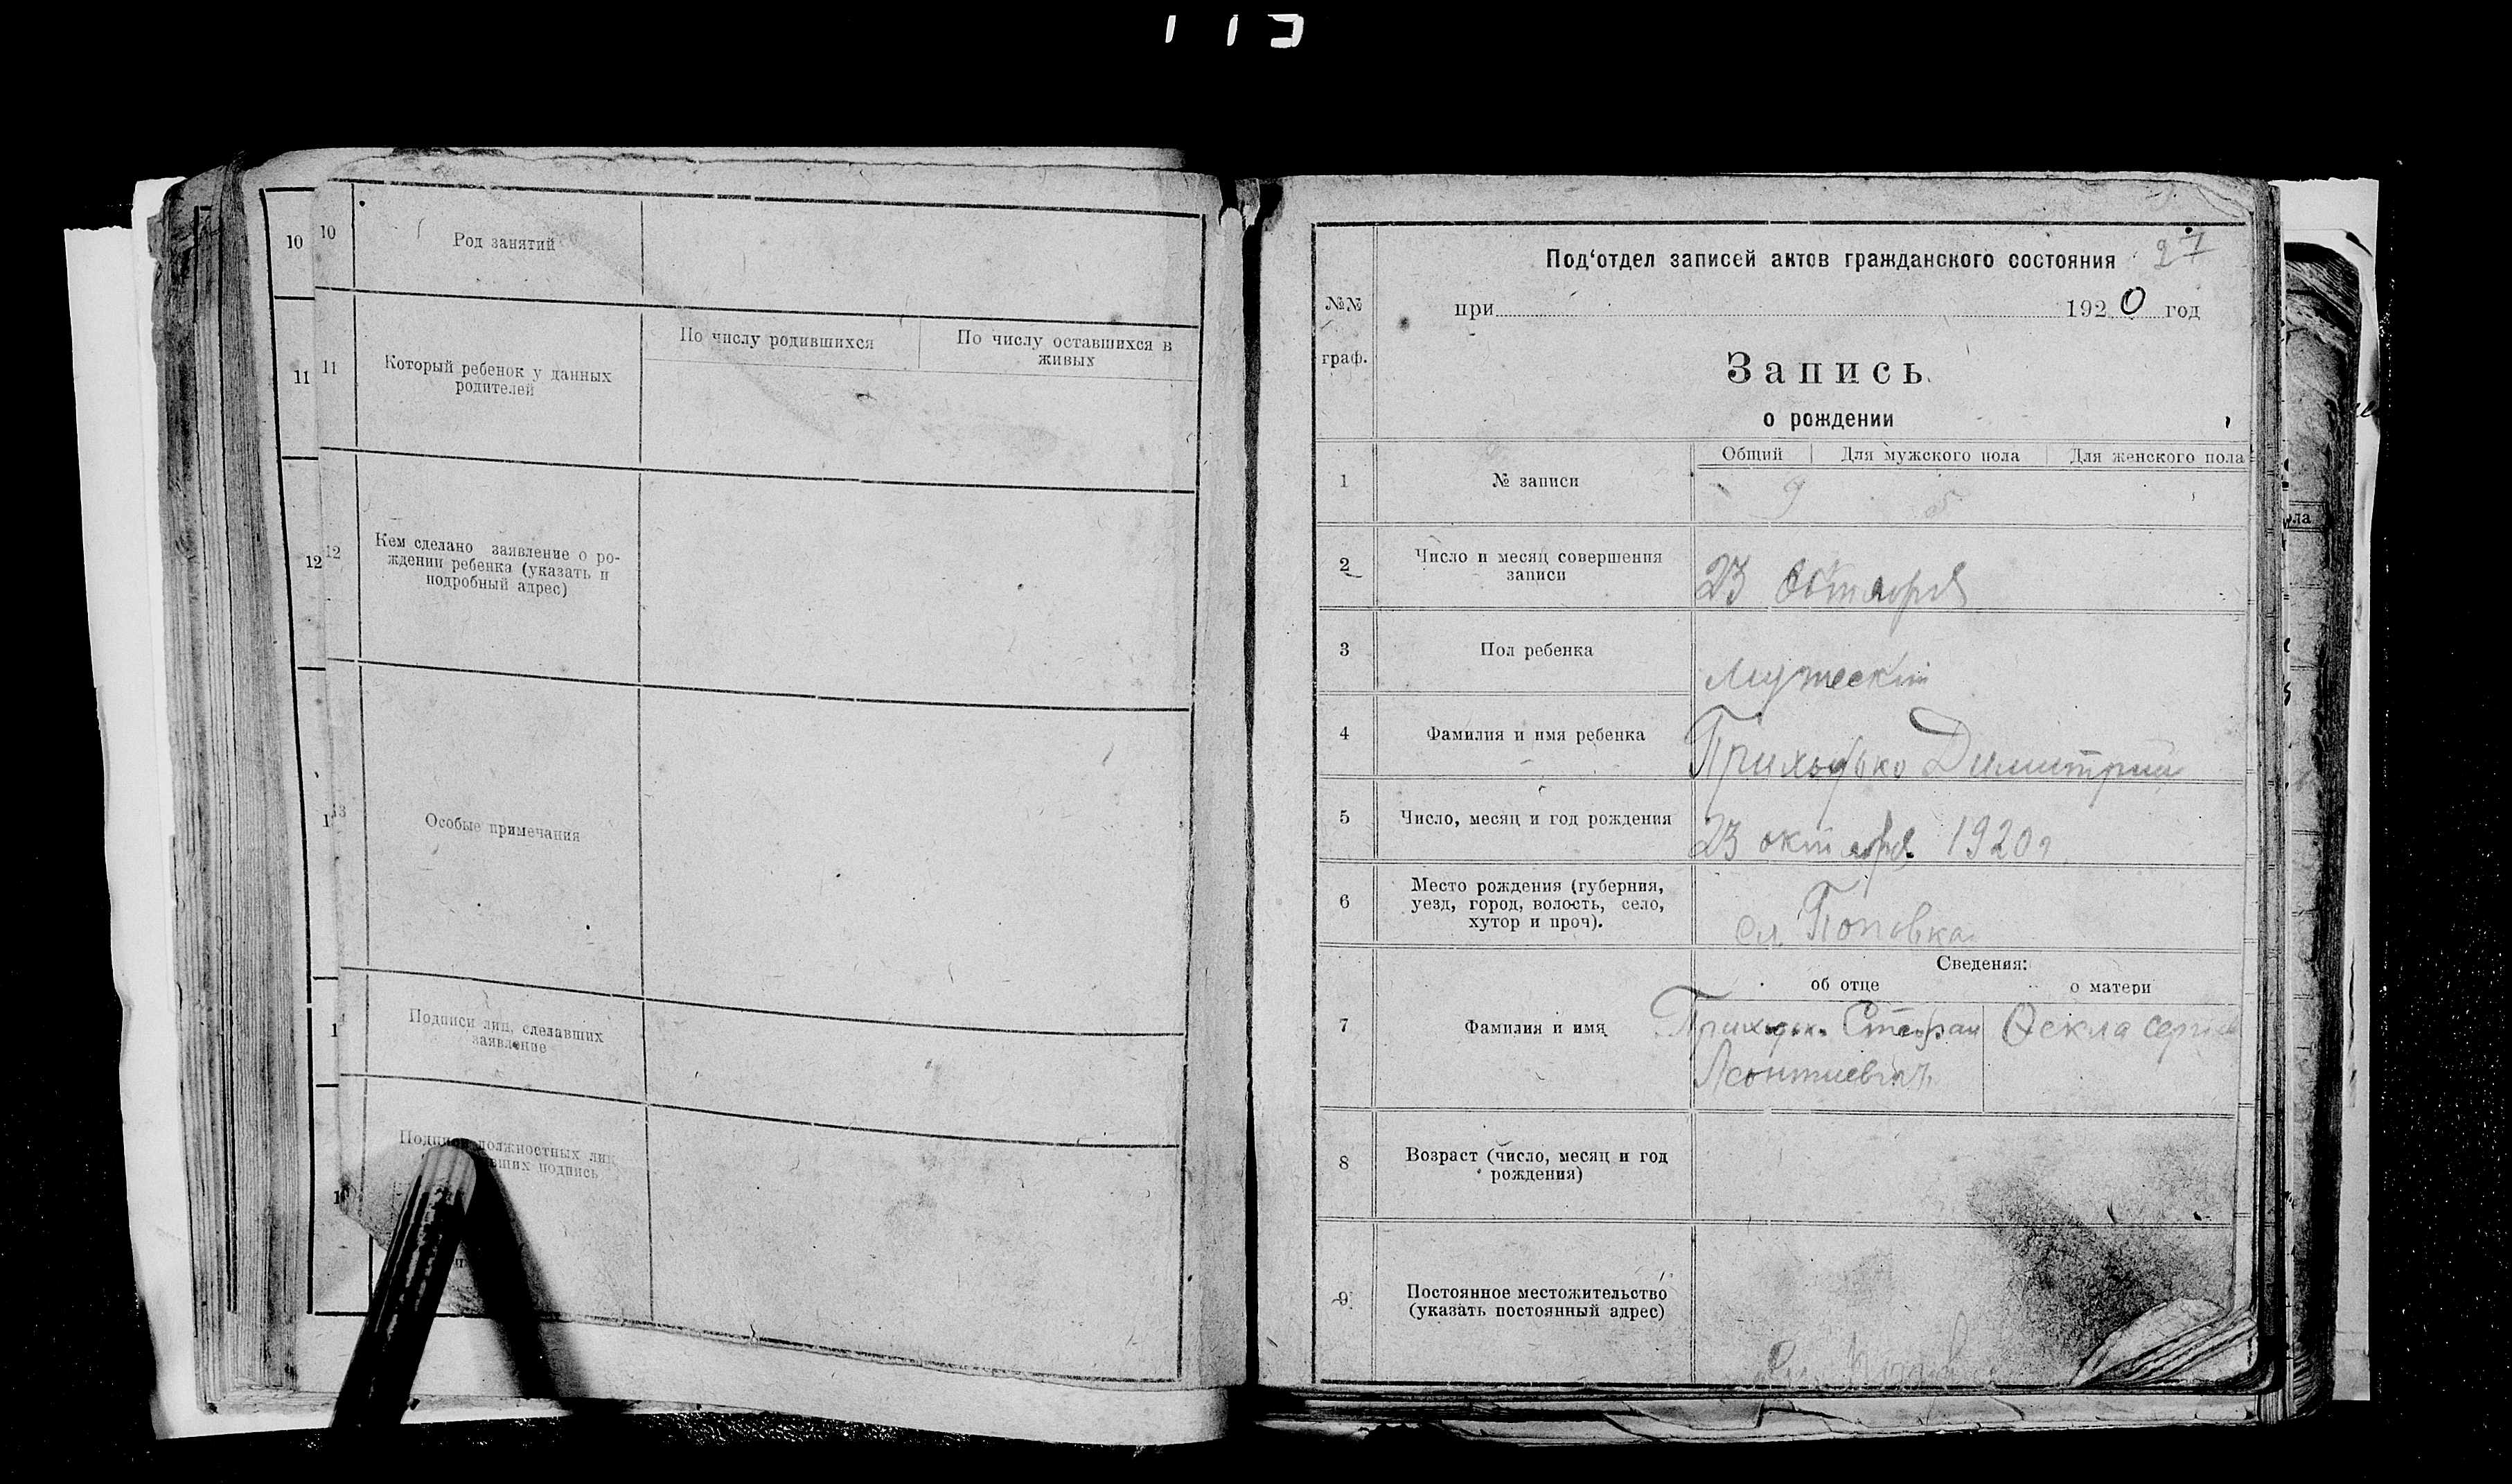 10
10
Род занятий
11
11
Который ребенок у данных
родителей
По числу родившихся
По числу оставшихся в
живых
12
12
Кем сделано заявление о ро-
ждении ребенка (указать и
подробный адрес)
1
13
Особые примечания
1
Подписи лиц, сделавших
заявление
должностных лиц
подпись
27
Под‘отдел записей актов гражданского состояния
№№
граф.
при 1920 год
Запись
о рождении
1
№ записи
Общий
Для мужского пола
Для женского пола
9
5
2
Число и месяц совершения
записи
23 октября
3
Пол ребенка
Мужескій
4
Фамилия и имя ребенка
Приходько Димитрий
5
Число, месяц и год рождения
23 октября 1920 г
6
Место рождения (губерния,
уезд, город, волость, село,
хутор и проч).
сл. Поповка
Сведения:
об отце
о матери
7
Фамилия и имя
Приходько Стефан
Леонтиевич
Фекла
8
Возраст (число, месяц и год
рождения)
9
Постоянное местожительство
(указать постоянный адрес)